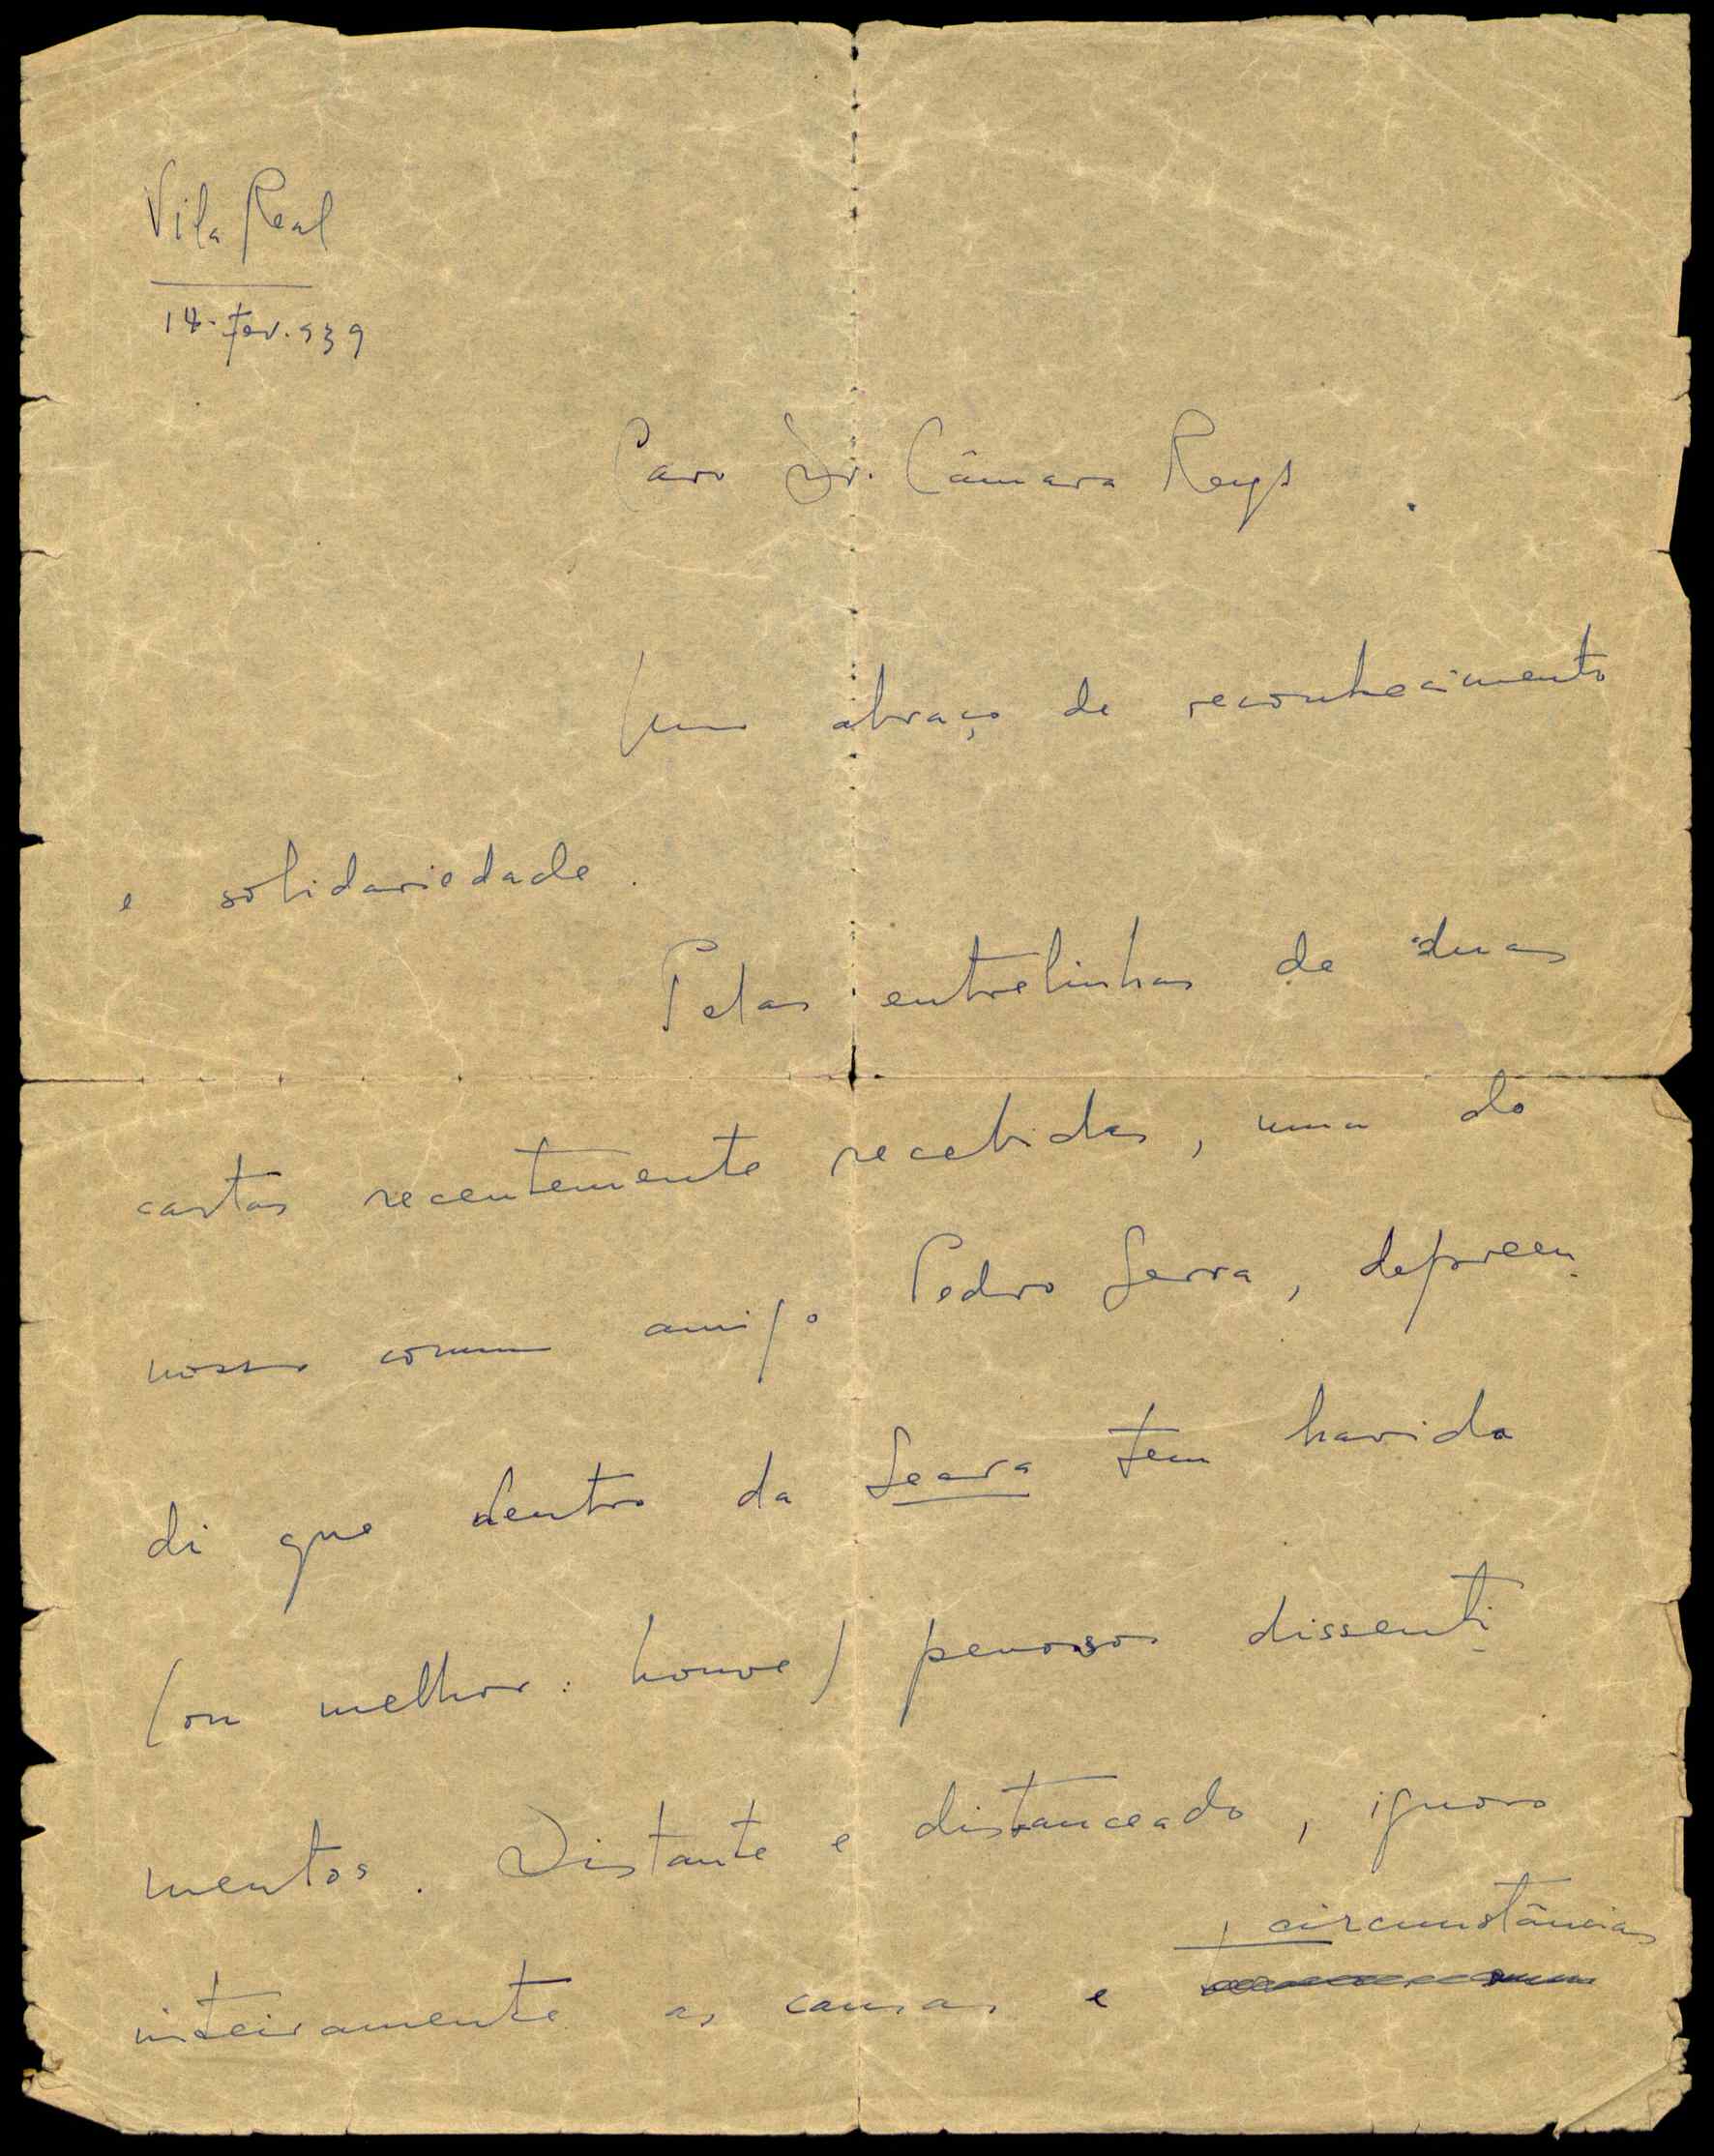 Vila Real
14. fev. 939
Caro Dr. Câmara Reys
Um abraço de reconhecimento
e solidariedade.
Pelas entrelinhas de duas
cartas recentemente recebidas, uma do
nosso comum amigo Pedro Serra, depreen
di que dentro da Seara tem havido
(ou melhor: houve) penosos dissenti
mentos. Distante e distanceado, ignoro
circunstâncias
inteiramente as causas e